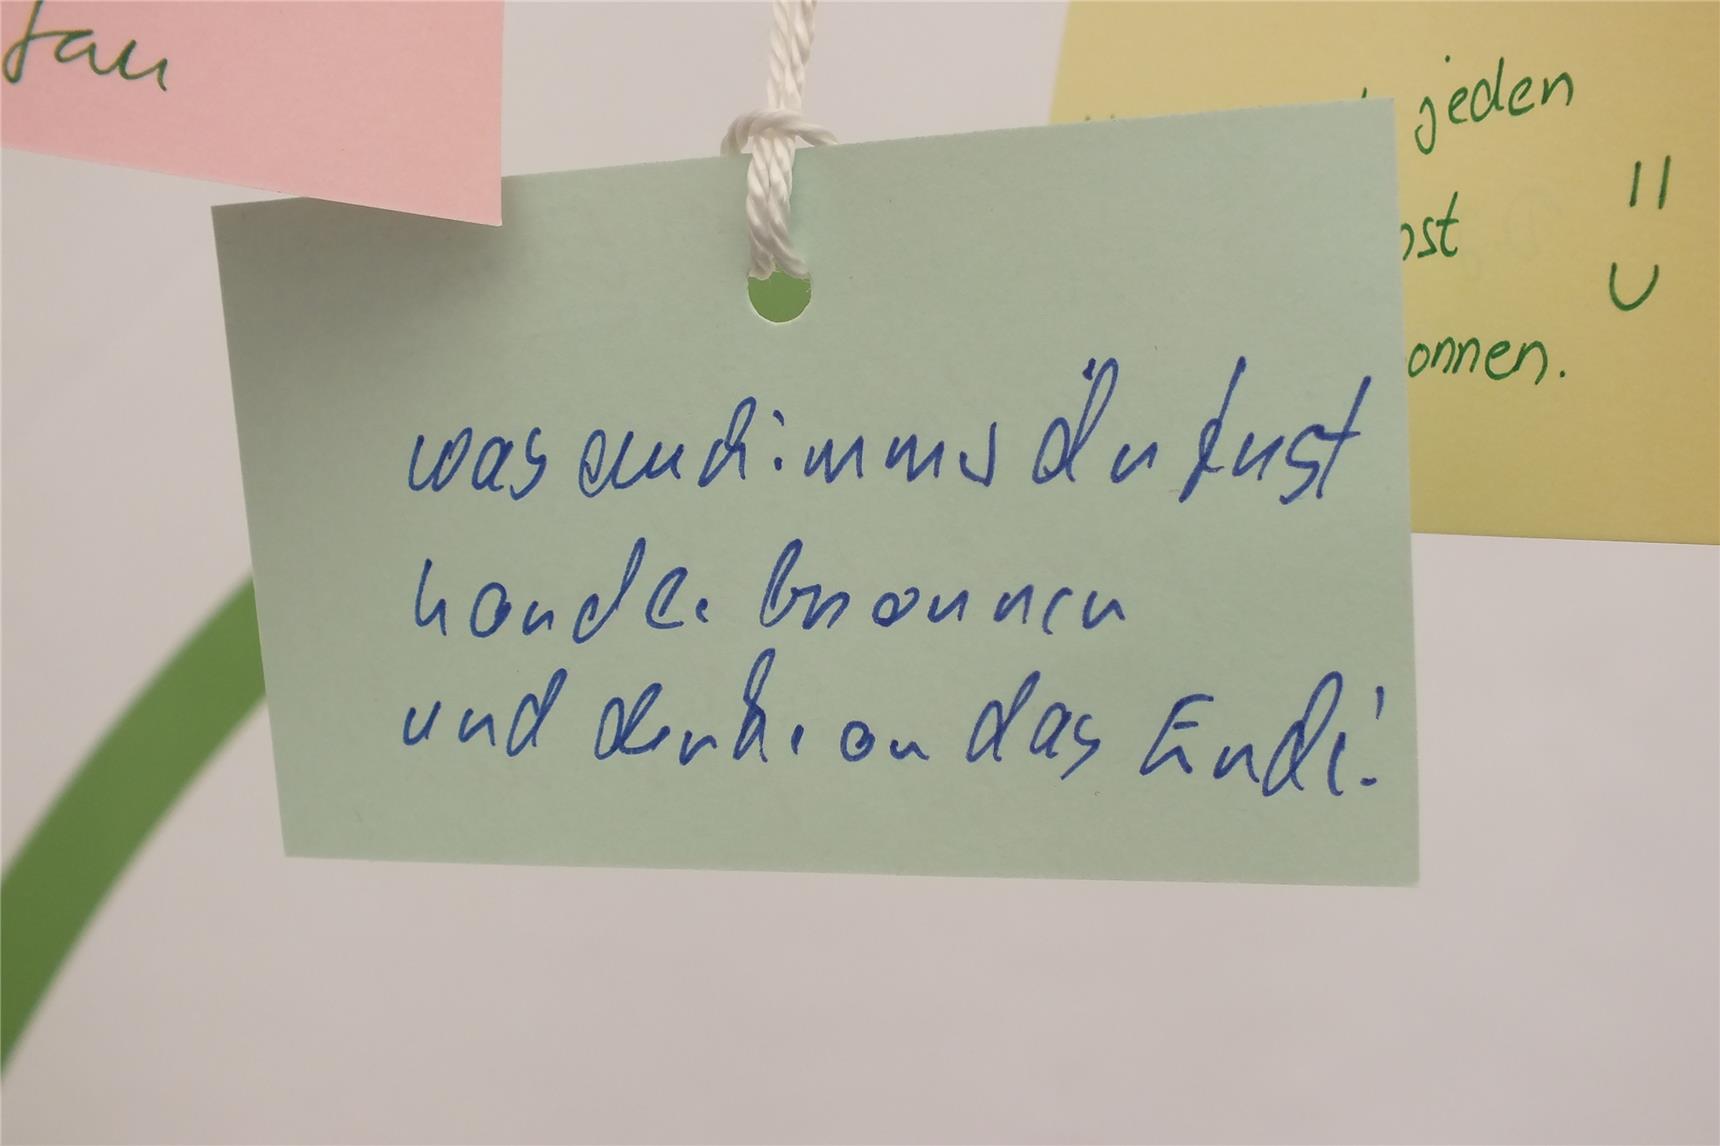 jeden
onnen.
was auch immer du tust
handle besonnen
und denke an das Ende!